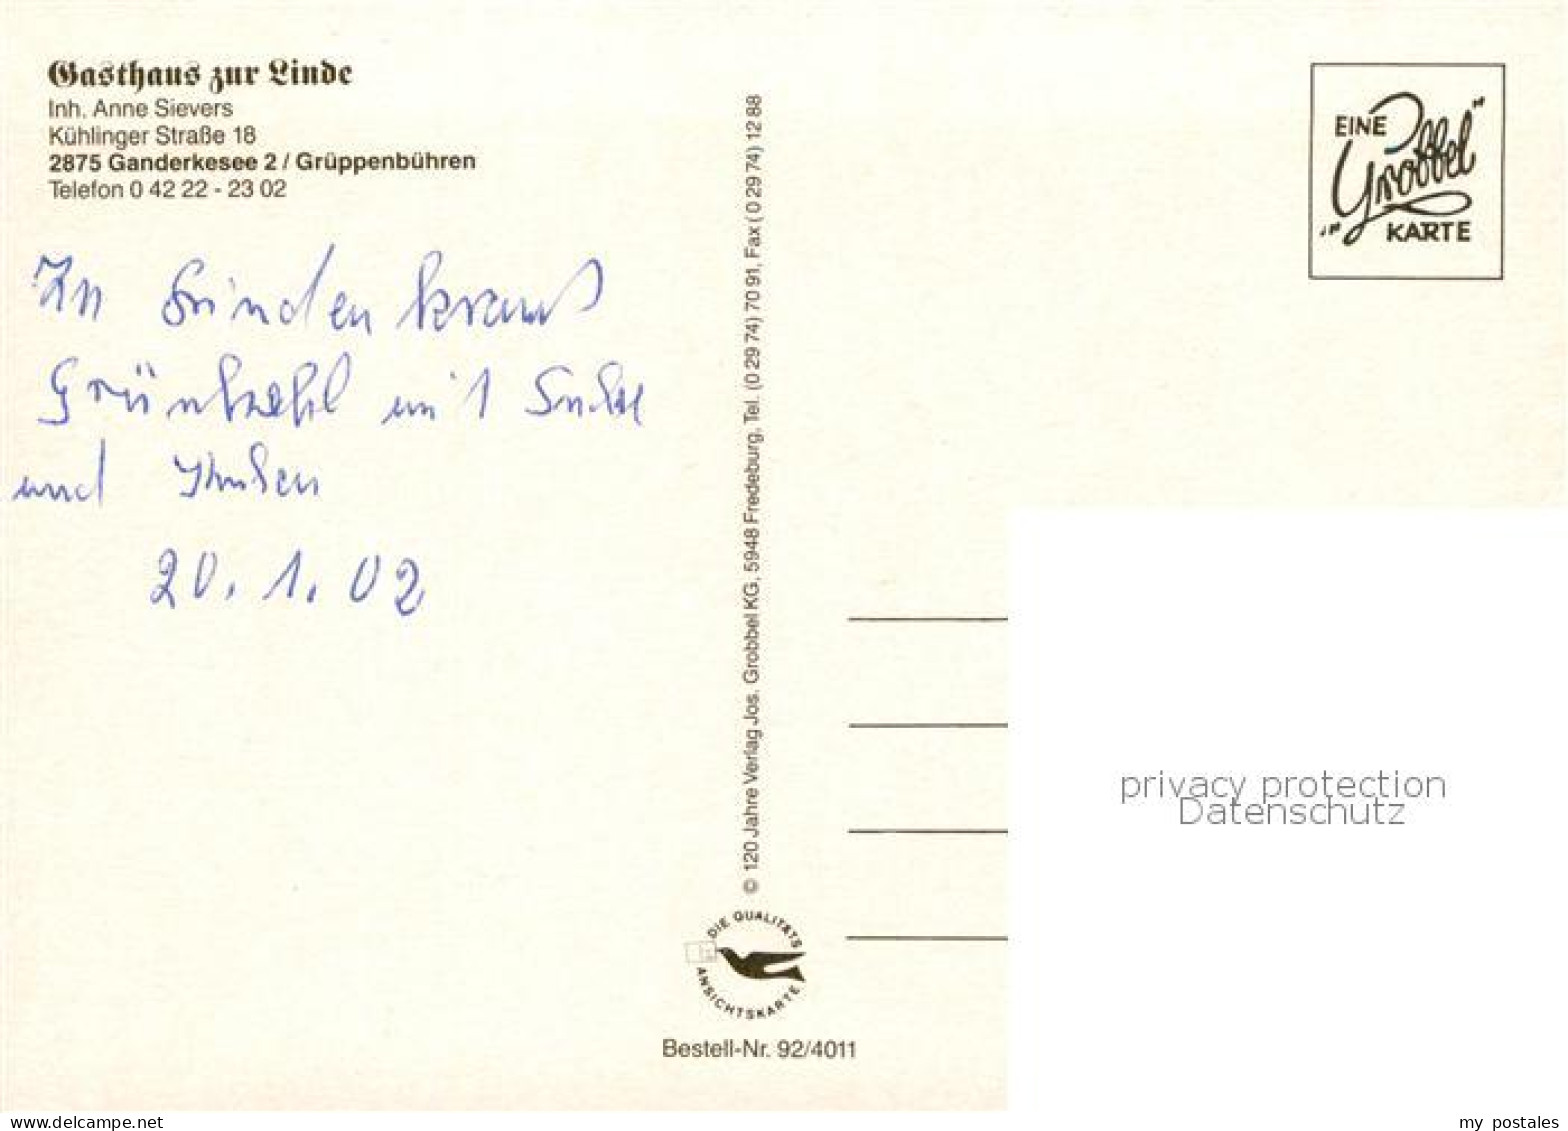 Gasthaus zur Linde
Inh. Anne Sievers
Kühlinger Straße 18
2875 Ganderkesee 2 / Grüppenbühren
Telefon 0 42 22 - 23 02
In
mit
und
20.1.02
© 120 Jahre Verlag Jos. Grobbel KG, 5948 Fredeburg, Tel. (0 29 74) 70 91, Fax (0 29 74) 12 88
DIE QUALITÄTS
ANSICHTSKARTE
Bestell-Nr. 92/4011
EINE
"Grobbel"
KARTE
privacy protection
Datenschutz
www.delcampe.net
my_postales